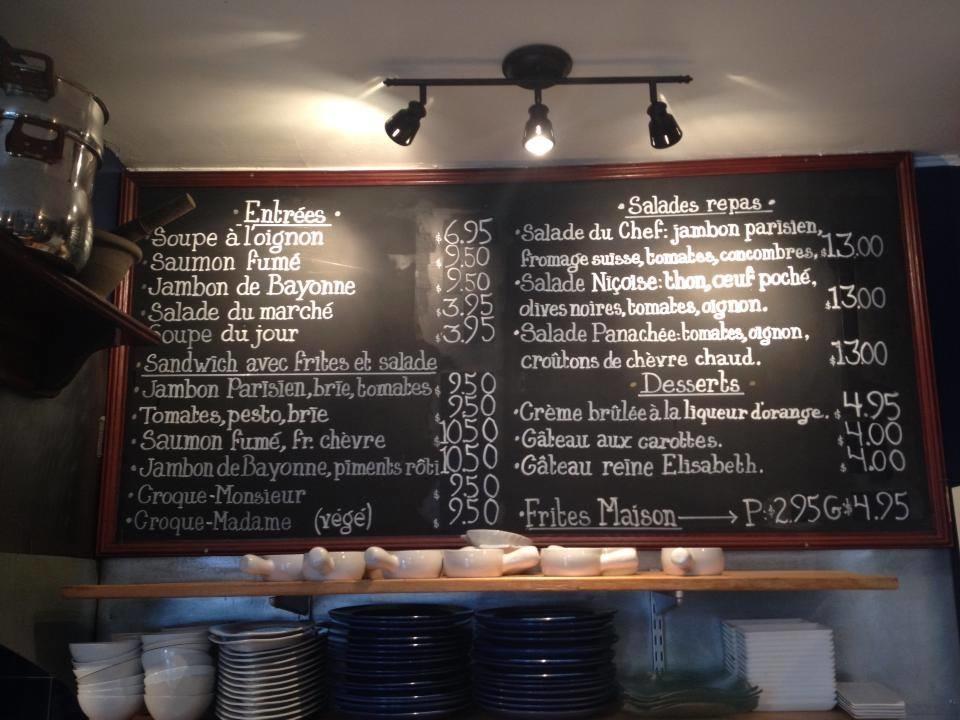 · Entrées ·
· Soupe à l'oignon $6.95
· Saumon fumé $9.50
· Jambon de Bayonne $9.50
· Salade du marché $3.95
· Soupe du jour $3.95
· Sandwich avec frites et salade
· Jambon Parisien, brie, tomates $9.50
· Tomates, pesto, brie $9.50
· Saumon fumé, fr. chèvre $10.50
· Jambon de Bayonne, piments rôti $10.50
· Croque-Monsieur $9.50
· Croque-Madame (végé) $9.50
· Salades repas ·
· Salade du Chef: jambon parisien,
fromage suisse, tomates, concombres, $13.00
· Salade Niçoise: thon, œuf poché,
olives noires, tomates, oignon. $13.00
· Salade Panachée: tomates, oignon,
croûtons de chèvre chaud. $13.00
· Desserts ·
· Crème brûlée à la liqueur d'orange. $4.95
· Gâteau aux carottes. $4.00
· Gâteau reine Elisabeth. $4.00
· Frites Maison → P: $2.95 G: $4.95